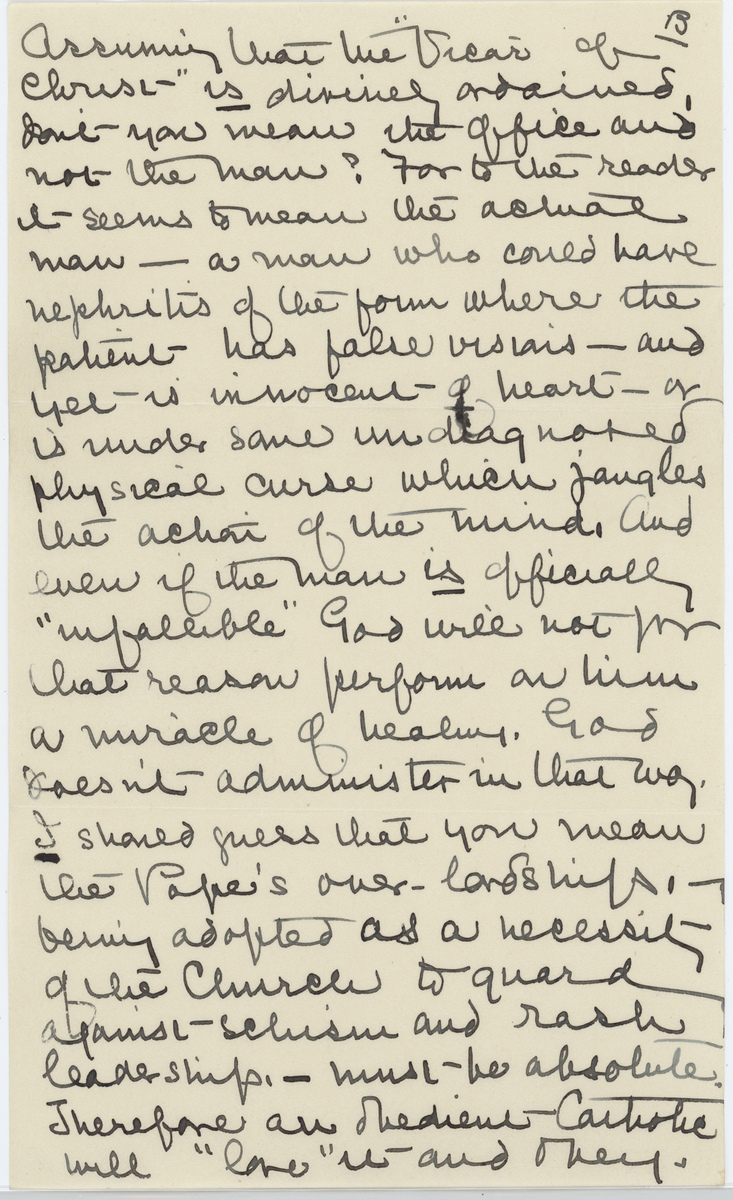 B
Assuming that the "Vicar of
Christ" is divinely ordained,
don't you mean the office and
not the man? For to the reader
it seems to mean the actual
man — a man who could have
nephritis of the form where the
patient has false visions — and
yet is innocent of heart — or
is under some undiagnosed
physical curse which jangles
the action of the mind. And
even if the man is officially
"infallible" God will not for
that reason perform on him
a miracle of healing. God
doesn't administer in that way.
I should guess that you mean
the Pope's over-lordship, —
being adopted as a necessity
of the Church to guard
against schism and rash
leadership, — must be absolute.
Therefore an obedient Catholic
will "love" it and obey.